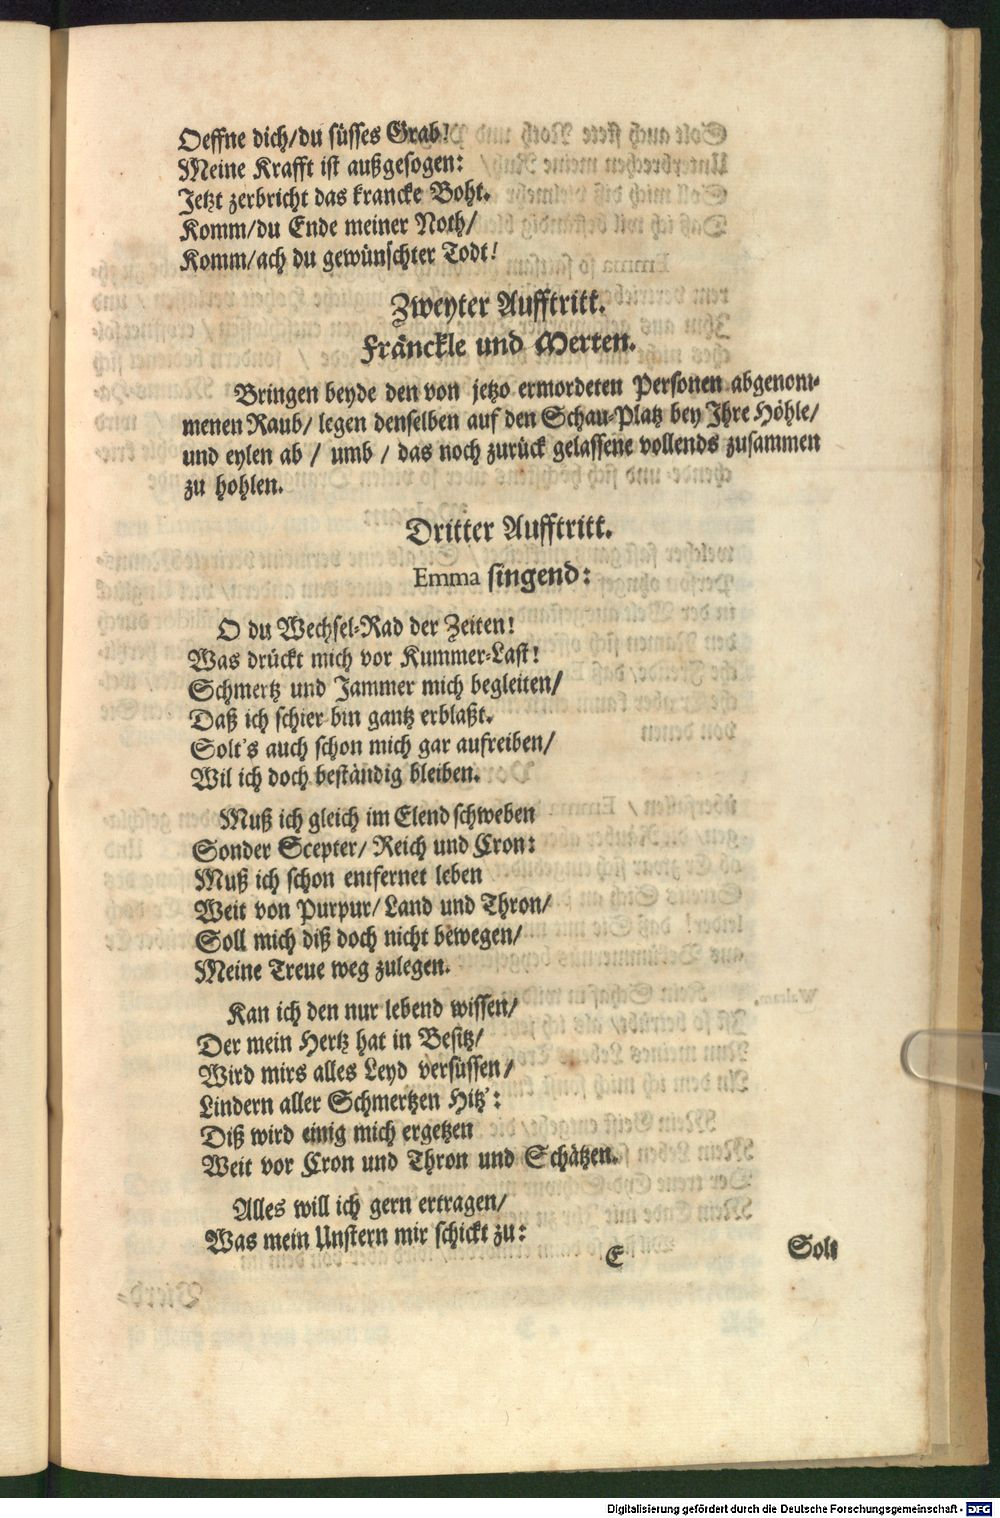 Oeffne dich/du süsses Grab!
Meine Krafft ist außgesogen:
Jetzt zerbricht das krancke Boht.
Komm/du Ende meiner Noth/
Komm/ach du gewünschter Todt!
Zweyter Aufftritt.
Fränckle und Merten.
Bringen beyde den von jetzo ermordeten Personen abgenom-
menen Raub/ legen denselben auf den Schau-Platz bey Ihre Höhle/
und eylen ab / umb / das noch zurück gelassene vollends zusammen
zu hohlen.
Dritter Aufftritt.
Emma singend:
O du Wechsel-Rad der Zeiten!
Was drückt mich vor Kummer-Last!
Schmertz und Jammer mich begleiten/
Daß ich schier bin gantz erblaßt.
Solt's auch schon mich gar aufreiben/
Wil ich doch beständig bleiben.
Muß ich gleich im Elend schweben
Sonder Scepter/ Reich und Cron:
Muß ich schon entfernet leben
Weit von Purpur/ Land und Thron/
Soll mich diß doch nicht bewegen/
Meine Treue weg zulegen.
Kan ich den nur lebend wissen/
Der mein Hertz hat in Besitz/
Wird mirs alles Leyd versüssen/
Lindern aller Schmertzen Hitz':
Diß wird einig mich ergetzen
Weit vor Cron und Thron und Schätzen.
Alles will ich gern ertragen/
Was mein Unstern mir schickt zu:
E Solt
Digitalisierung gefördert durch die Deutsche Forschungsgemeinschaft - DFG